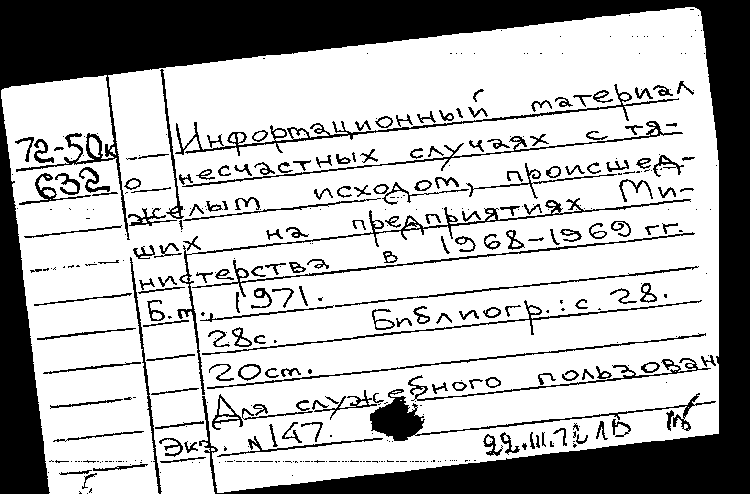 Информационный материал
72-50к
632
о несчастных случаях с тя-
желым исходом, происшед-
ших на предприятиях Ми-
нистерства в 1968-1969 гг.
Б.т., 1971.
28с. Библиогр.: с. 28.
20ст.
Для служебного пользован
Экз. № 147.
22.III.72 1В